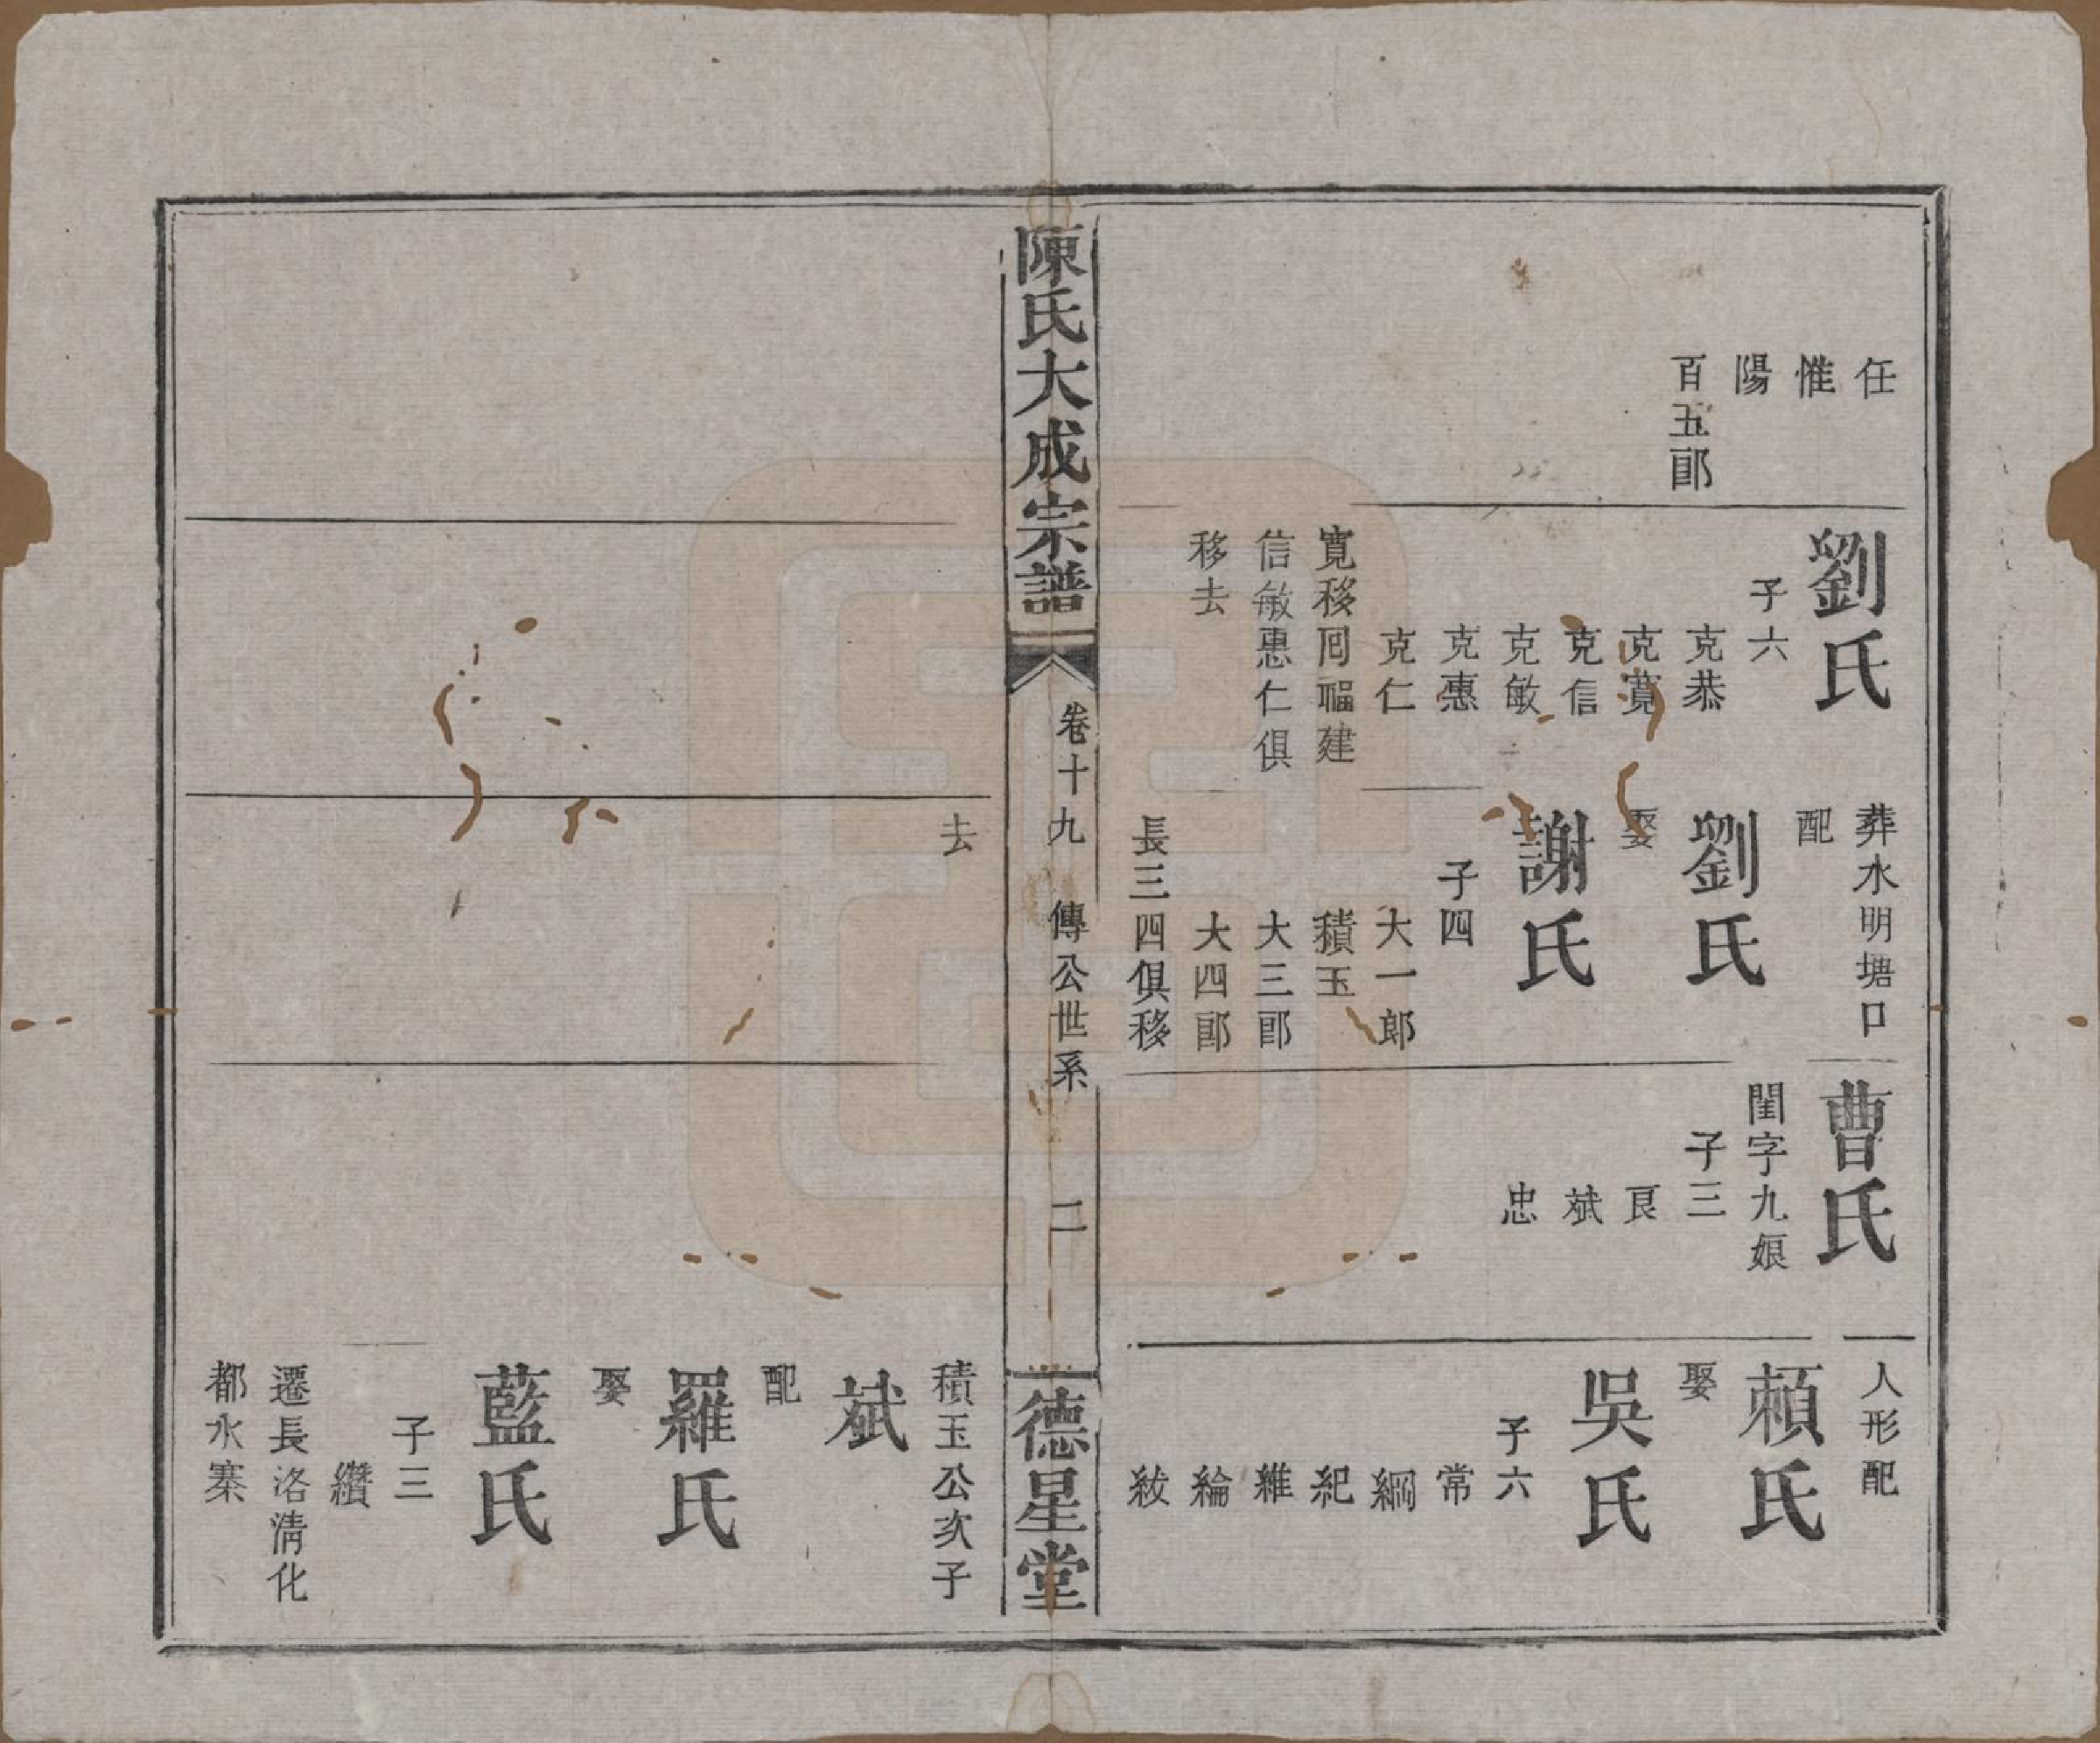 任
惟
陽
百五郎
劉氏
子六
克恭
克寬
克信
克敏
克惠
克仁
寬移囘福建
信敏惠仁俱
移去
葬水明塘口
配
劉氏
娶
謝氏
子四
大一郎
積玉
大三郎
大四郎
長三四俱移
曹氏
閨字九娘
子三
良
斌
忠
人形配
賴氏
娶
吳氏
子六
常
綱
紀
維
綸
紱
陳氏大成宗譜
卷十九
傳公世系
二
德星堂
去
積玉公次子
斌
配
羅氏
娶
藍氏
子三
纘
遷長洛清化
都水寨